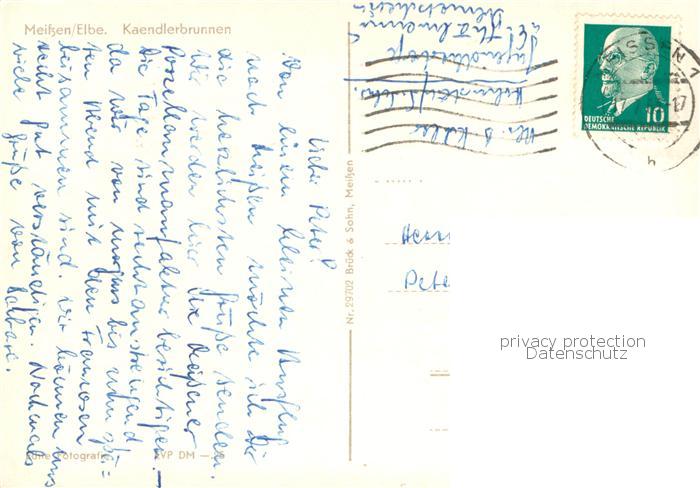 Meißen/Elbe. Kaendlerbrunnen
Lieber Peter!
Von einem kleinen Ausflug
nach Meißen möchte ich Dir
die herzlichsten Grüße senden.
Wir werden hier die Meißener
Porzellanmanufaktur besichtigen.
Die Tage sind recht anstrengend
da wir von morgens bis in den spä-
ten Abend mit den Franzosen
beisammen sind. Wir können uns
recht gut verständigen. Nochmals
viele Grüße von Barbara.
Echte Fotografie
EVP DM
Nr. 29702 Brück & Sohn, Meißen
Jugendherberge
MEISSEN
10
DEUTSCHE
DEMOKRATISCHE REPUBLIK
Herrn
Pete
privacy protection
Datenschutz